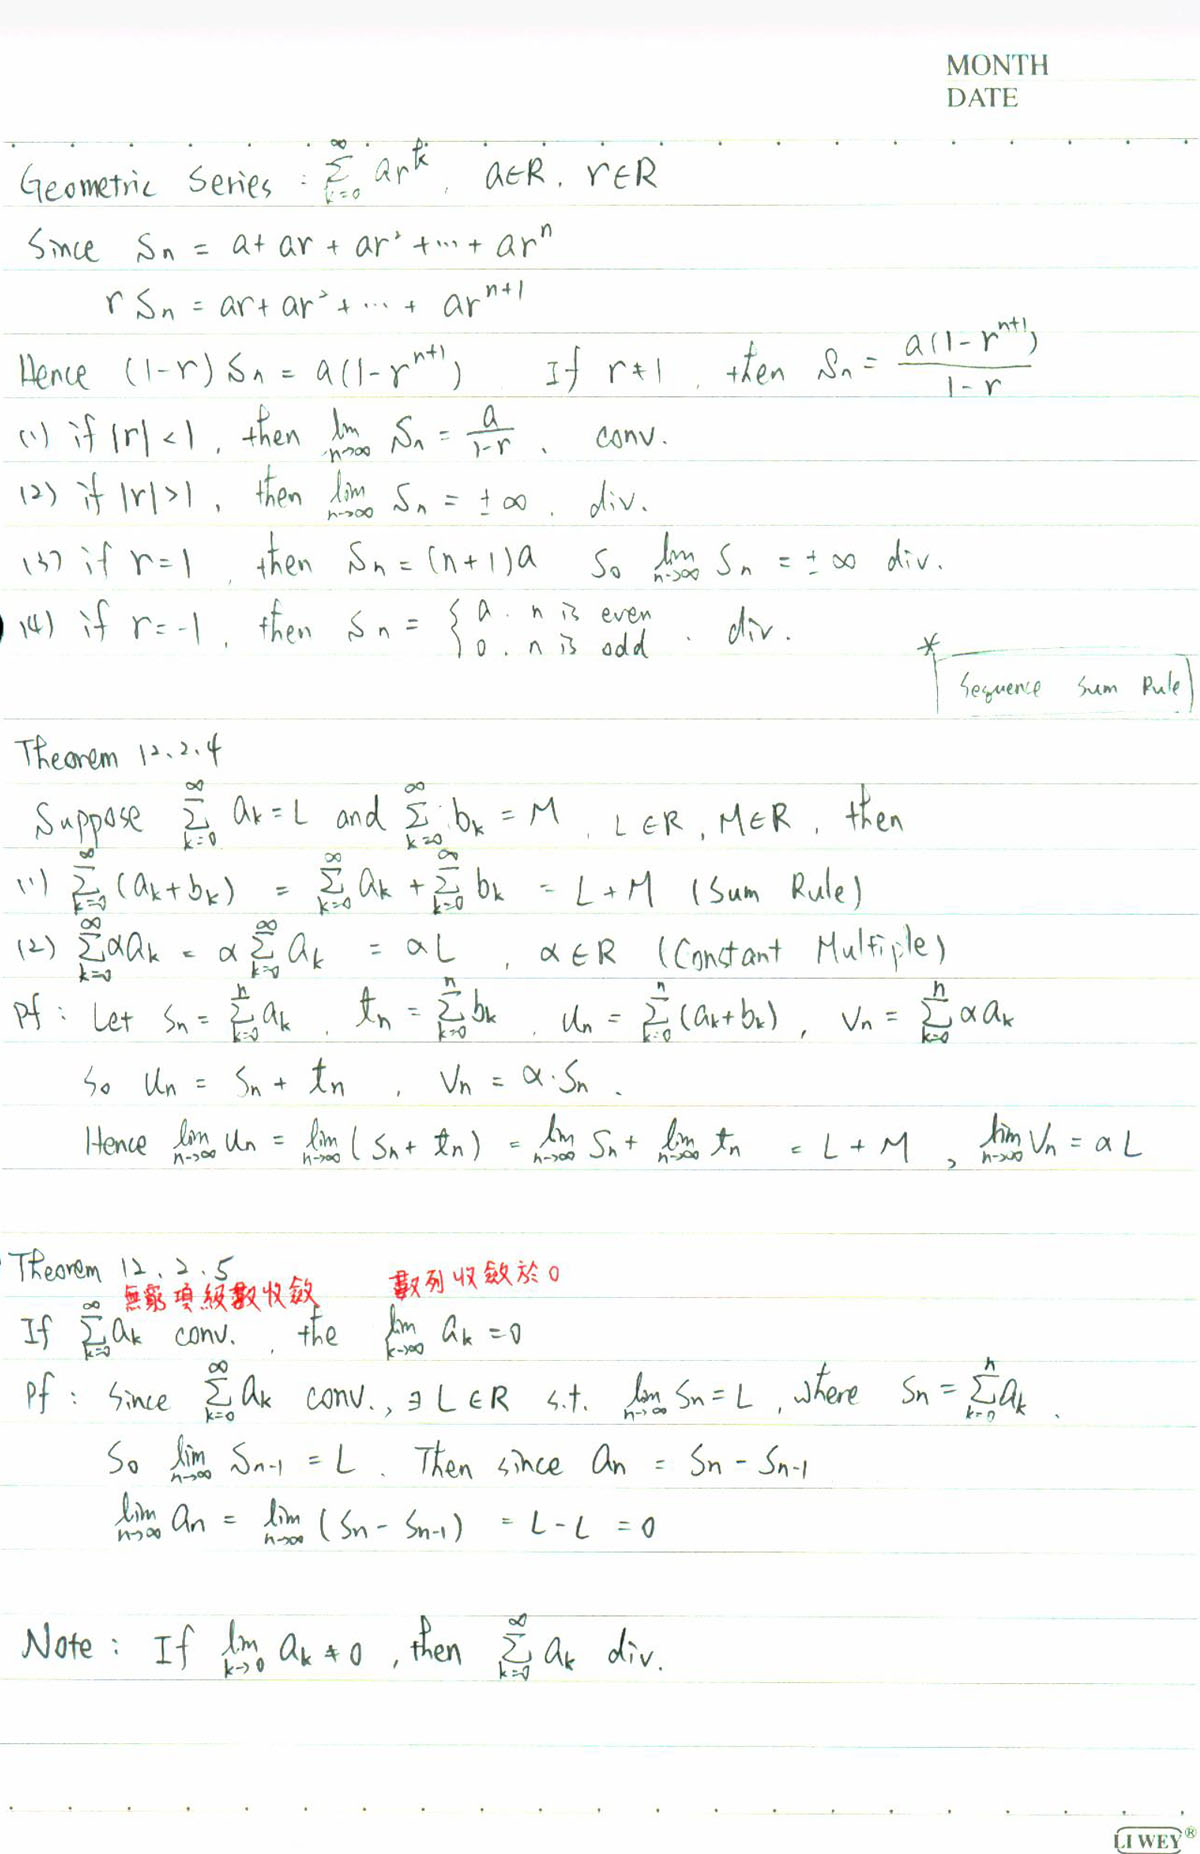 MONTH
DATE
Geometric Series : ∑_{k=0}^{∞} ar^k , a∈R, r∈R
Since Sn = a + ar + ar² + ⋯ + ar^n
rSn = ar + ar² + ⋯ + ar^{n+1}
Hence (1-r)Sn = a(1-r^{n+1}) If r≠1, then Sn = a(1-r^{n+1})/(1-r)
(1) if |r|<1, then lim_{n→∞} Sn = a/(1-r), conv.
(2) if |r|>1, then lim_{n→∞} Sn = ±∞, div.
(3) if r=1, then Sn = (n+1)a So lim_{n→∞} Sn = ±∞ div.
(4) if r=-1, then Sn = { a, n is even 0, n is odd . div.
* Sequence Sum Rule
Theorem 12.2.4
Suppose ∑_{k=0}^{∞} ak = L and ∑_{k=0}^{∞} bk = M, L∈R, M∈R, then
(1) ∑_{k=0}^{∞} (ak+bk) = ∑_{k=0}^{∞} ak + ∑_{k=0}^{∞} bk = L+M (Sum Rule)
(2) ∑_{k=0}^{∞} αak = α ∑_{k=0}^{∞} ak = αL, α∈R (Constant Multiple)
Pf : Let Sn = ∑_{k=0}^{n} ak, tn = ∑_{k=0}^{n} bk, un = ∑_{k=0}^{n} (ak+bk), Vn = ∑_{k=0}^{n} αak
So Un = Sn + tn, Vn = α·Sn.
Hence lim_{n→∞} Un = lim_{n→∞} (Sn + tn) = lim_{n→∞} Sn + lim_{n→∞} tn = L+M, lim_{n→∞} Vn = αL
Theorem 12.2.5
無窮項級數收斂 數列收斂於0
If ∑_{k=0}^{∞} ak conv., the lim_{k→∞} ak = 0
Pf : Since ∑_{k=0}^{∞} ak conv., ∃ L∈R s.t. lim_{n→∞} Sn = L, where Sn = ∑_{k=0}^{n} ak.
So lim_{n→∞} Sn-1 = L. Then since an = Sn - Sn-1
lim_{n→∞} an = lim_{n→∞} (Sn - Sn-1) = L-L = 0
Note : If lim_{k→0} ak ≠ 0, then ∑_{k=0}^{∞} ak div.
LI WEY®